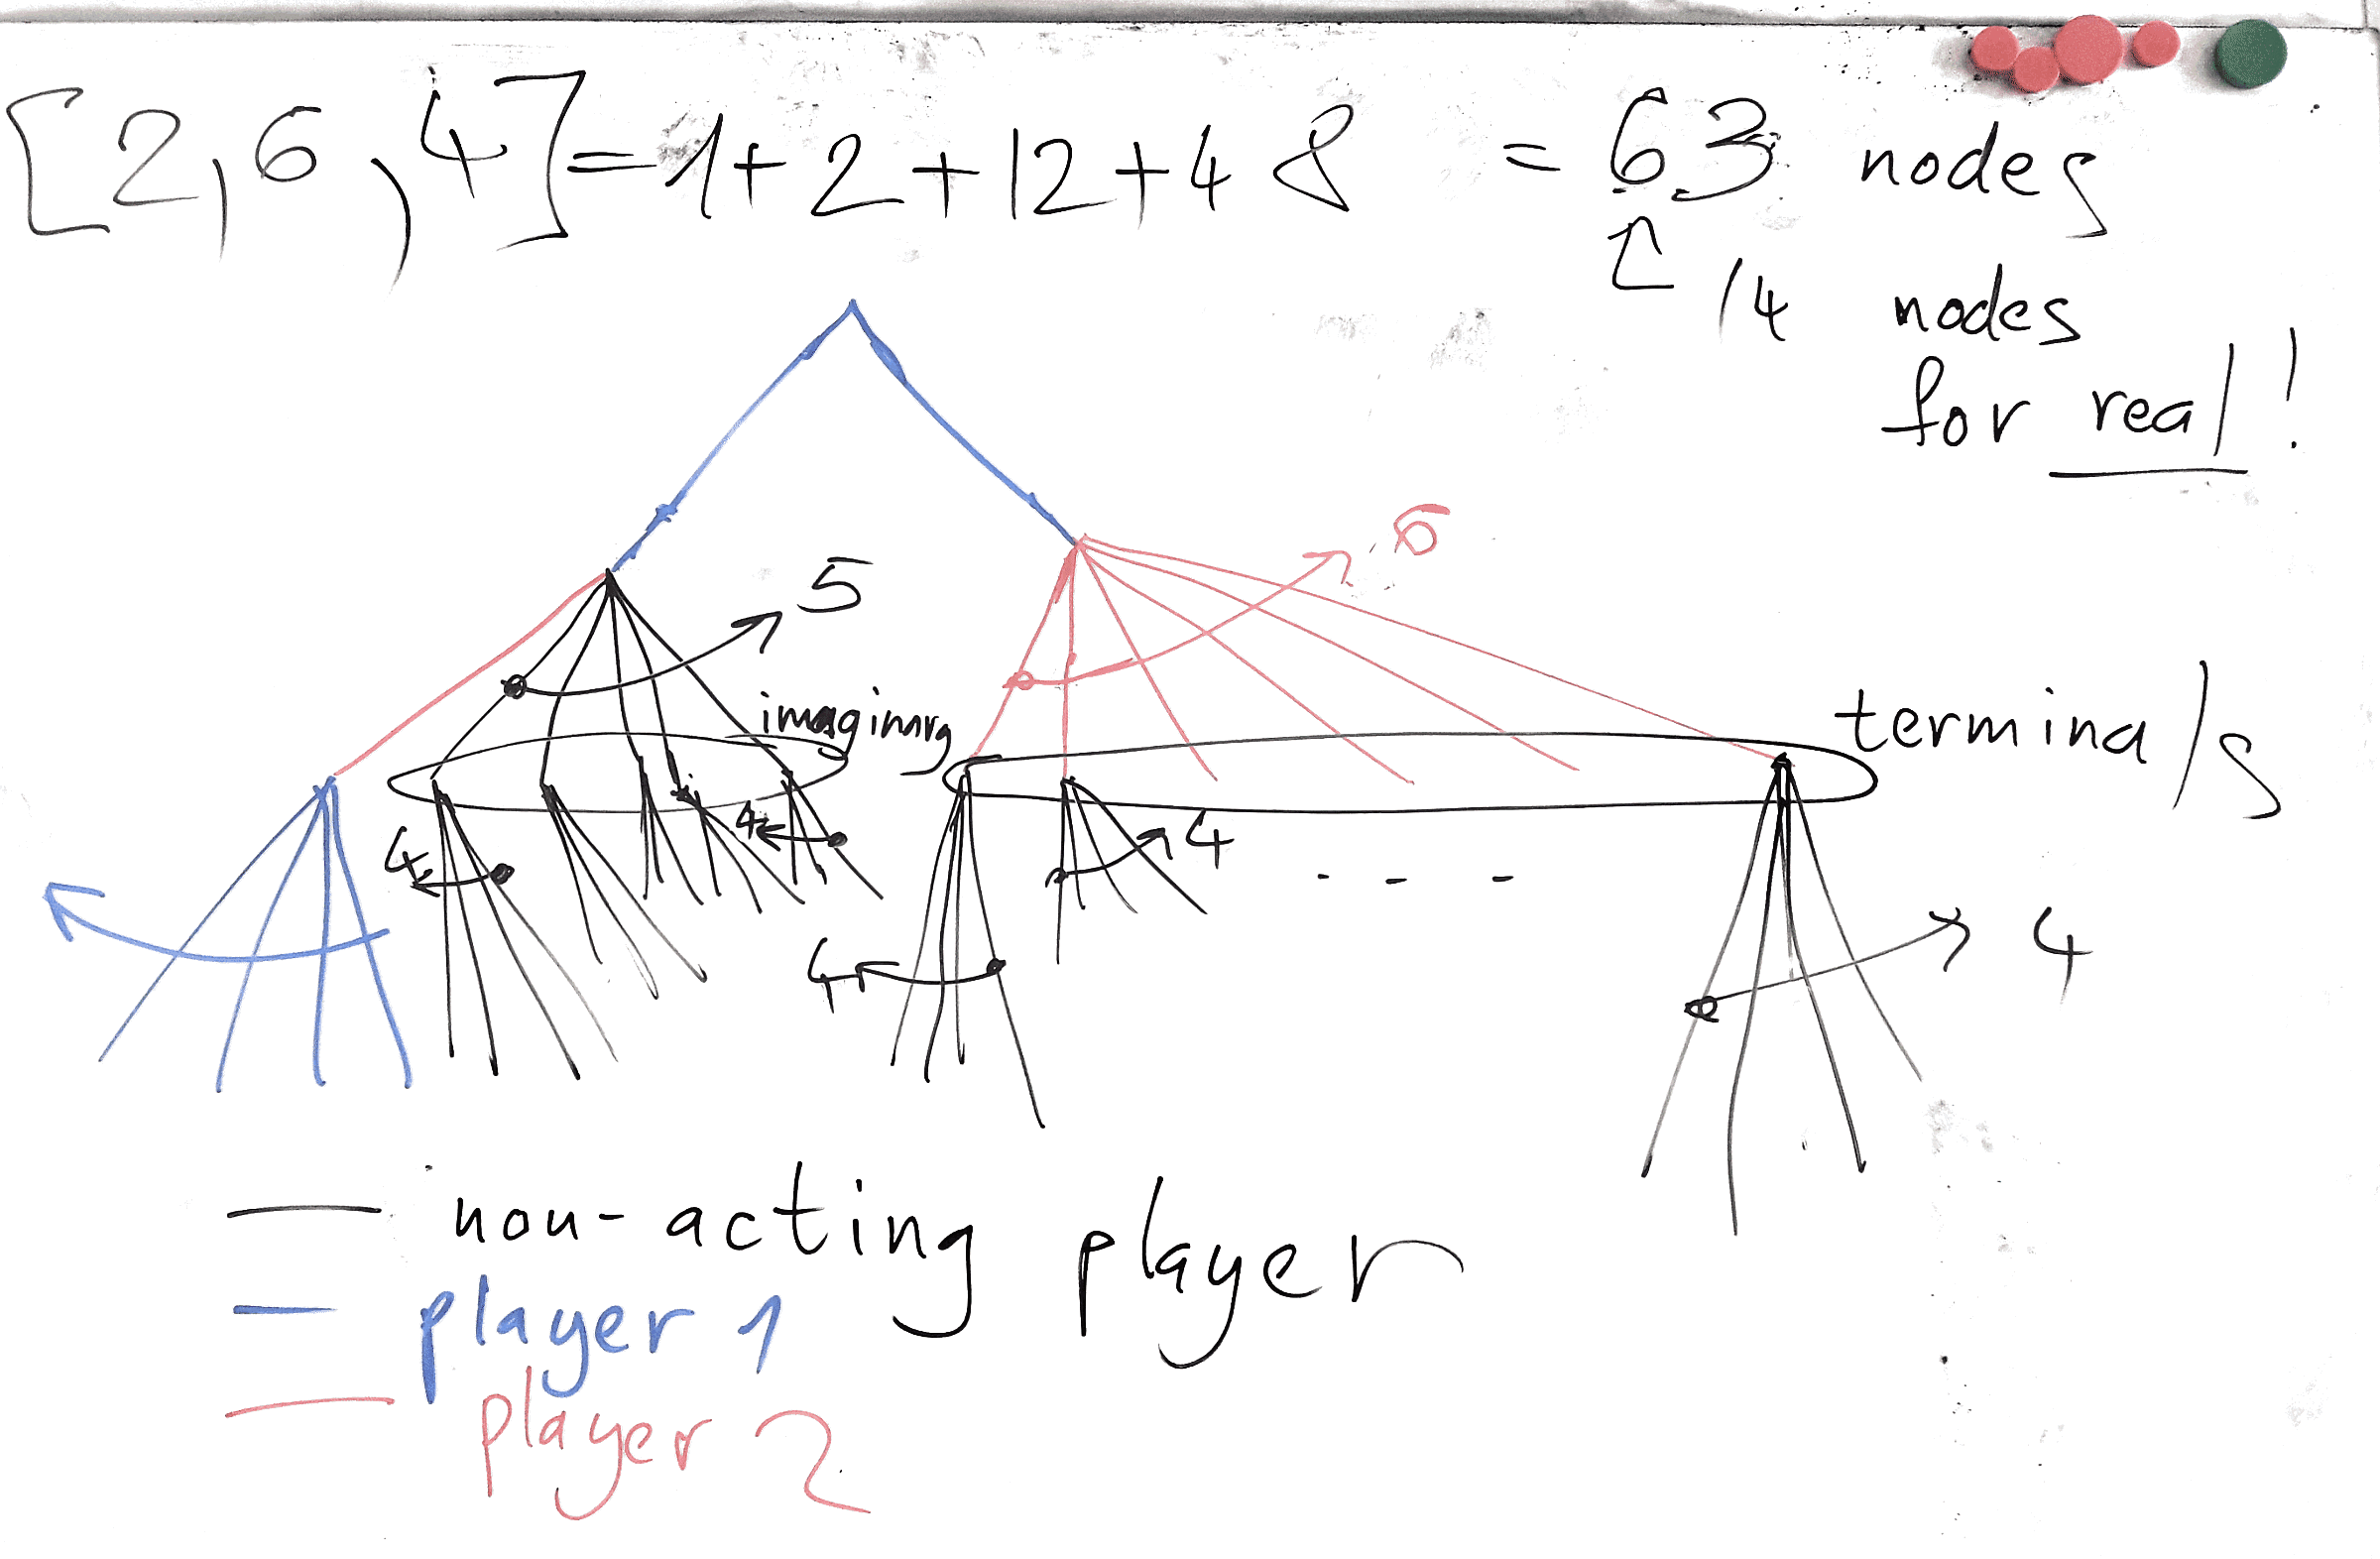 [2,6,4]=1+2+12+48 = 63 nodes
14 nodes
for real!
5
6
imaginary
terminals
4
4
4
4
4
non-acting player
player 1
player 2